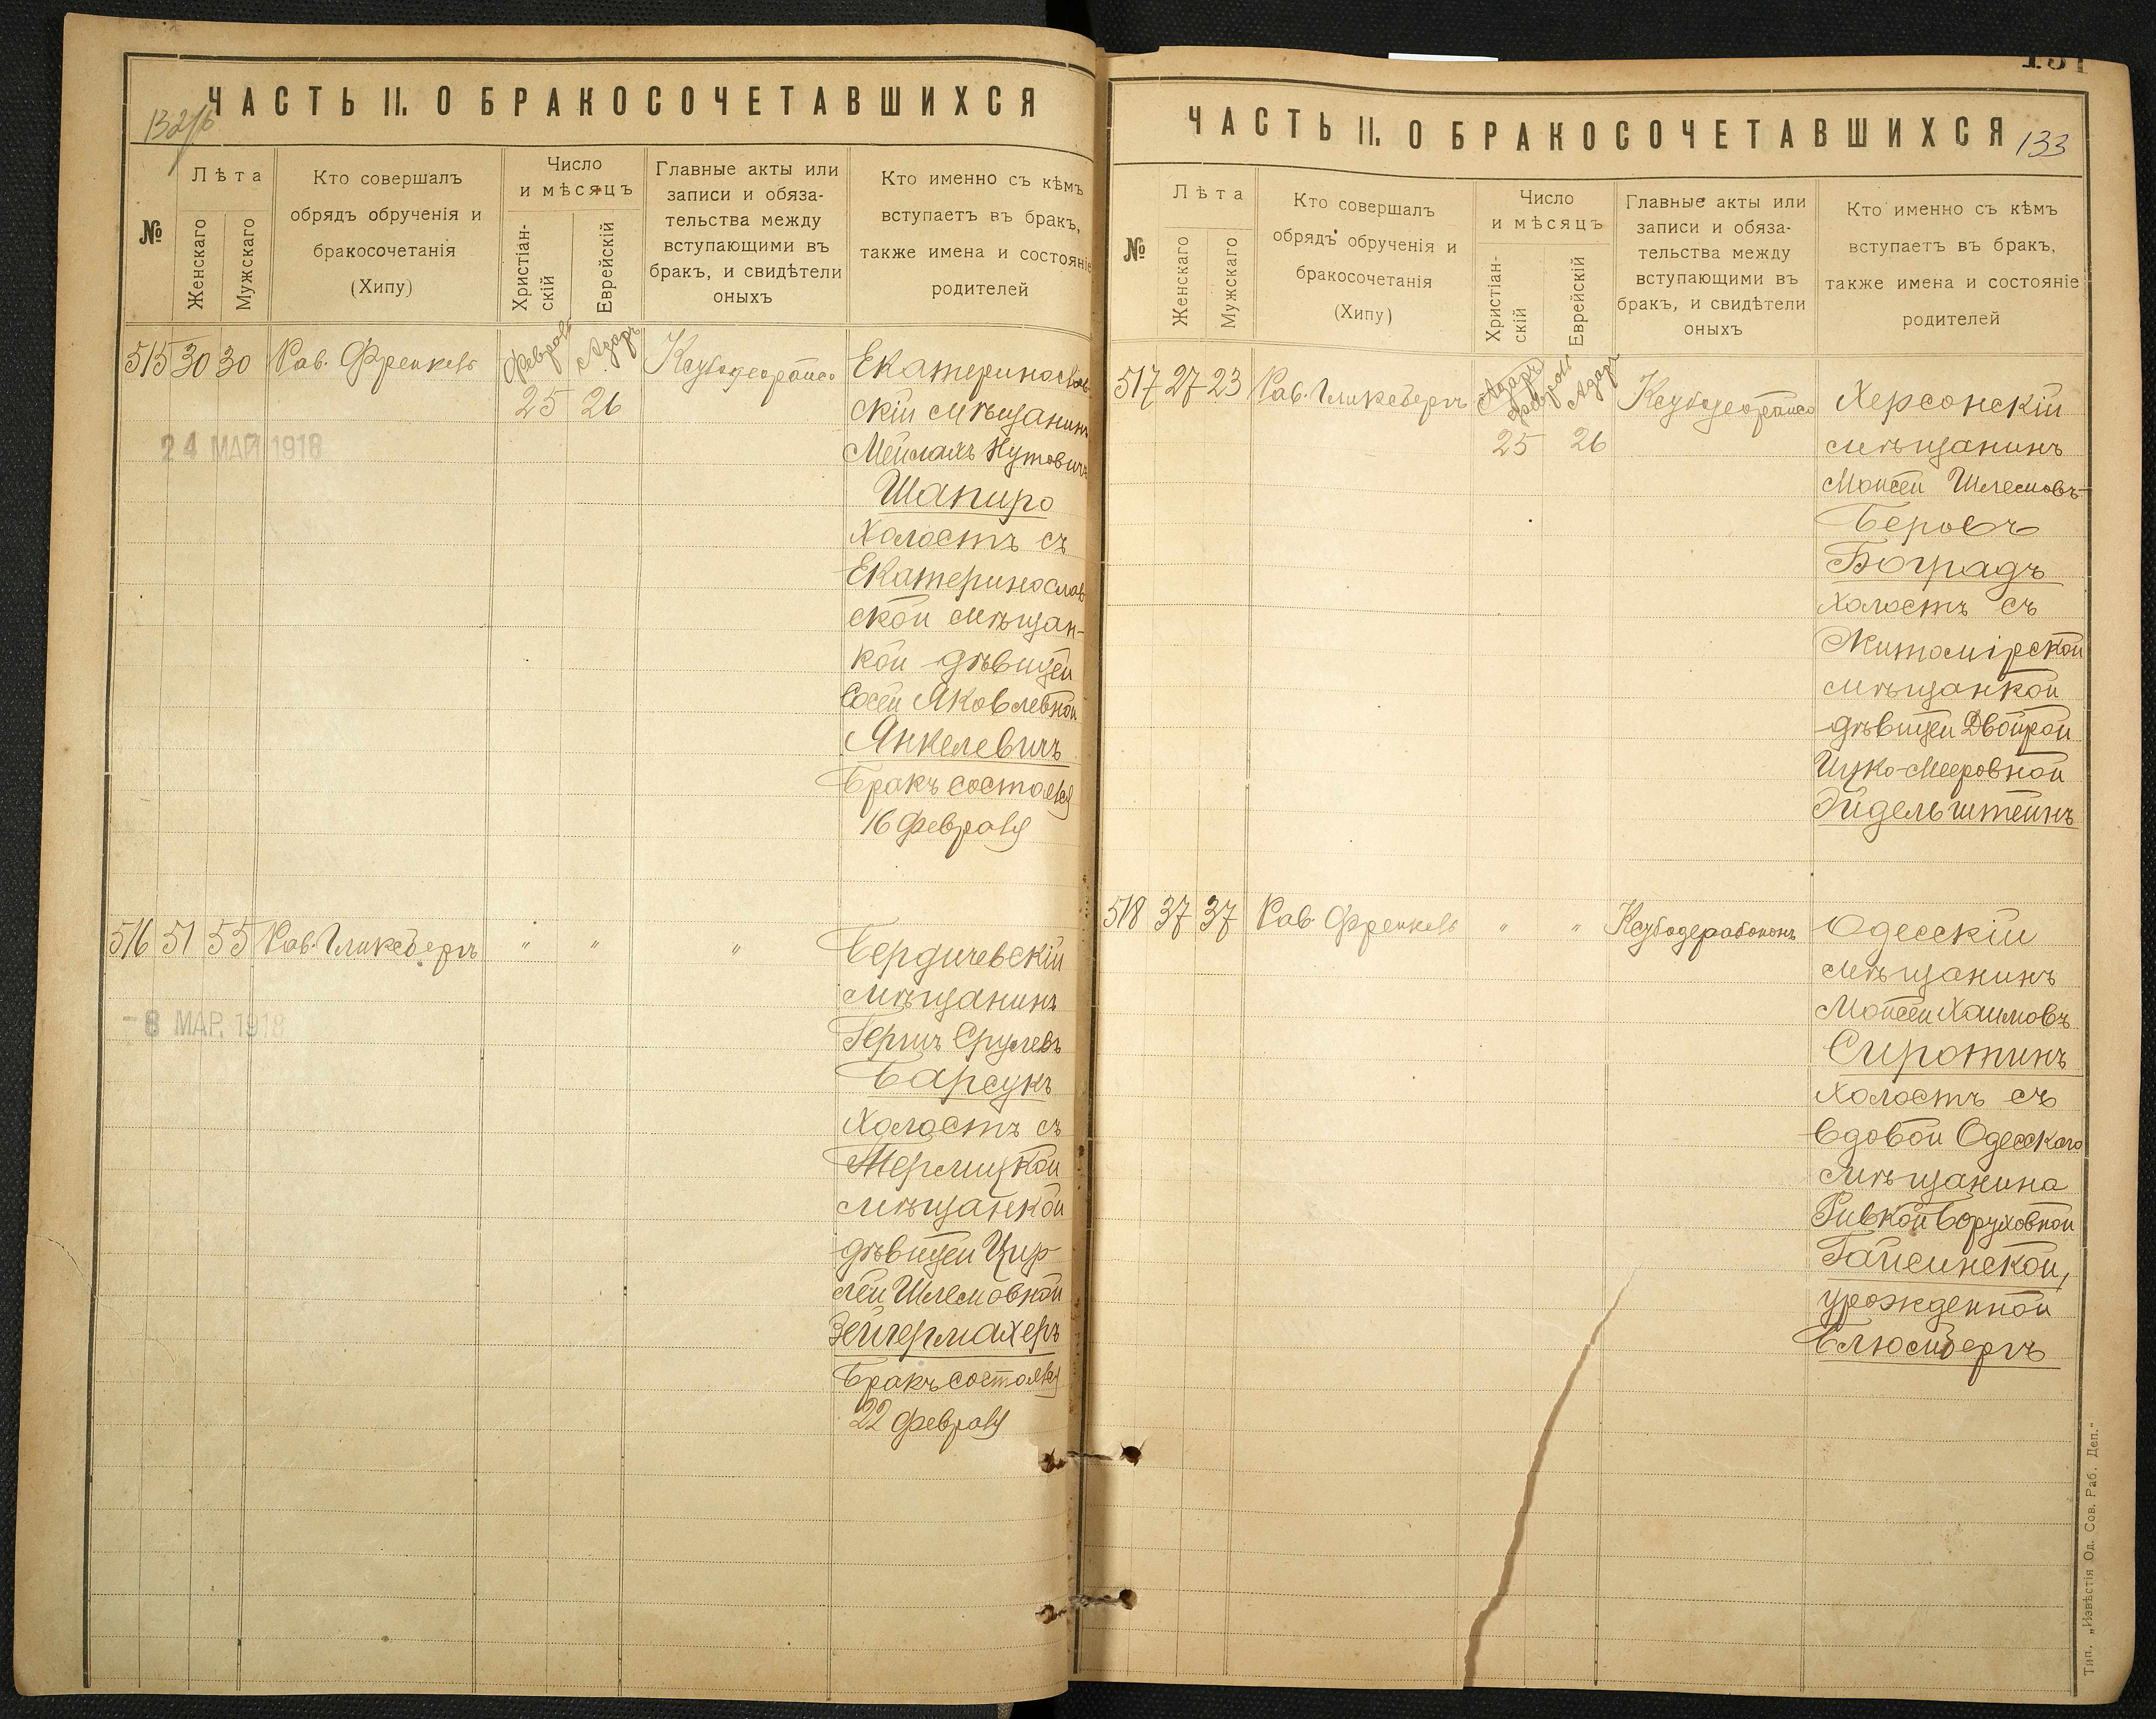 ЧАСТЬ II. О БРАКОСОЧЕТАВШИХСЯ
№
Лѣта
Женскаго
Мужскаго
Кто совершалъ
обрядъ обрученія и
бракосочетанія
(Хипу)
Число
и мѣсяцъ
Христіан-
скій
Еврейскій
Главные акты или
записи и обяза-
тельства между
вступающими въ
бракъ, и свидѣтели
оныхъ
Кто именно съ кѣмъ
вступаетъ въ бракъ,
также имена и состояніе
родителей
515 30 30 Рав. Френкель
Адаръ
25 26
Екатеринослав
скій мѣщанинъ
Мейлахъ Нутовичъ
Шапиро
Холостъ съ
Екатеринослав
ской мѣщан-
кой дѣвицей
Сосей Яковлевной
Янкелевичъ
Бракъ состоялся
16 февраля
24 МАЙ 1918
516 51 55 Рав. Гликсбергъ " " "
Бердичевскій
мѣщанинъ
Гершъ Срулевъ
Барсукъ
Холостъ съ
мѣщанкой
дѣвицей Цир
лей Шлемовной
Зейгермахеръ
Бракъ состоялся
22 февраля
-8 МАР. 1918
ЧАСТЬ II. О БРАКОСОЧЕТАВШИХСЯ
133
№
Лѣта
Женскаго
Мужскаго
Кто совершалъ
обрядъ обрученія и
бракосочетанія
(Хипу)
Число
и мѣсяцъ
Христіан-
скій
Еврейскій
Главные акты или
записи и обяза-
тельства между
вступающими въ
бракъ, и свидѣтели
оныхъ
Кто именно съ кѣмъ
вступаетъ въ бракъ,
также имена и состояніе
родителей
517 27 23 Рав. Гликсбергъ
Адаръ
25 26
Херсонскій
мѣщанинъ
Мойсей Шлемовъ-
Беровъ
Боградъ
холостъ съ
Житомірской
мѣщанкой
дѣвицей Двойрой
Ицко-Мееровной
Эйдельштейнъ
518 37 37 Рав Френкель " "
Одесскій
мѣщанинъ
Мойсей Хаимовъ
Сиротинъ
Холостъ съ
вдовой Одесскаго
мѣщанина
Ривкой Боруховной
Гайсинской,
урожденной
Блюмбергъ
Тип. „Извѣстія Од. Сов. Раб. Деп."